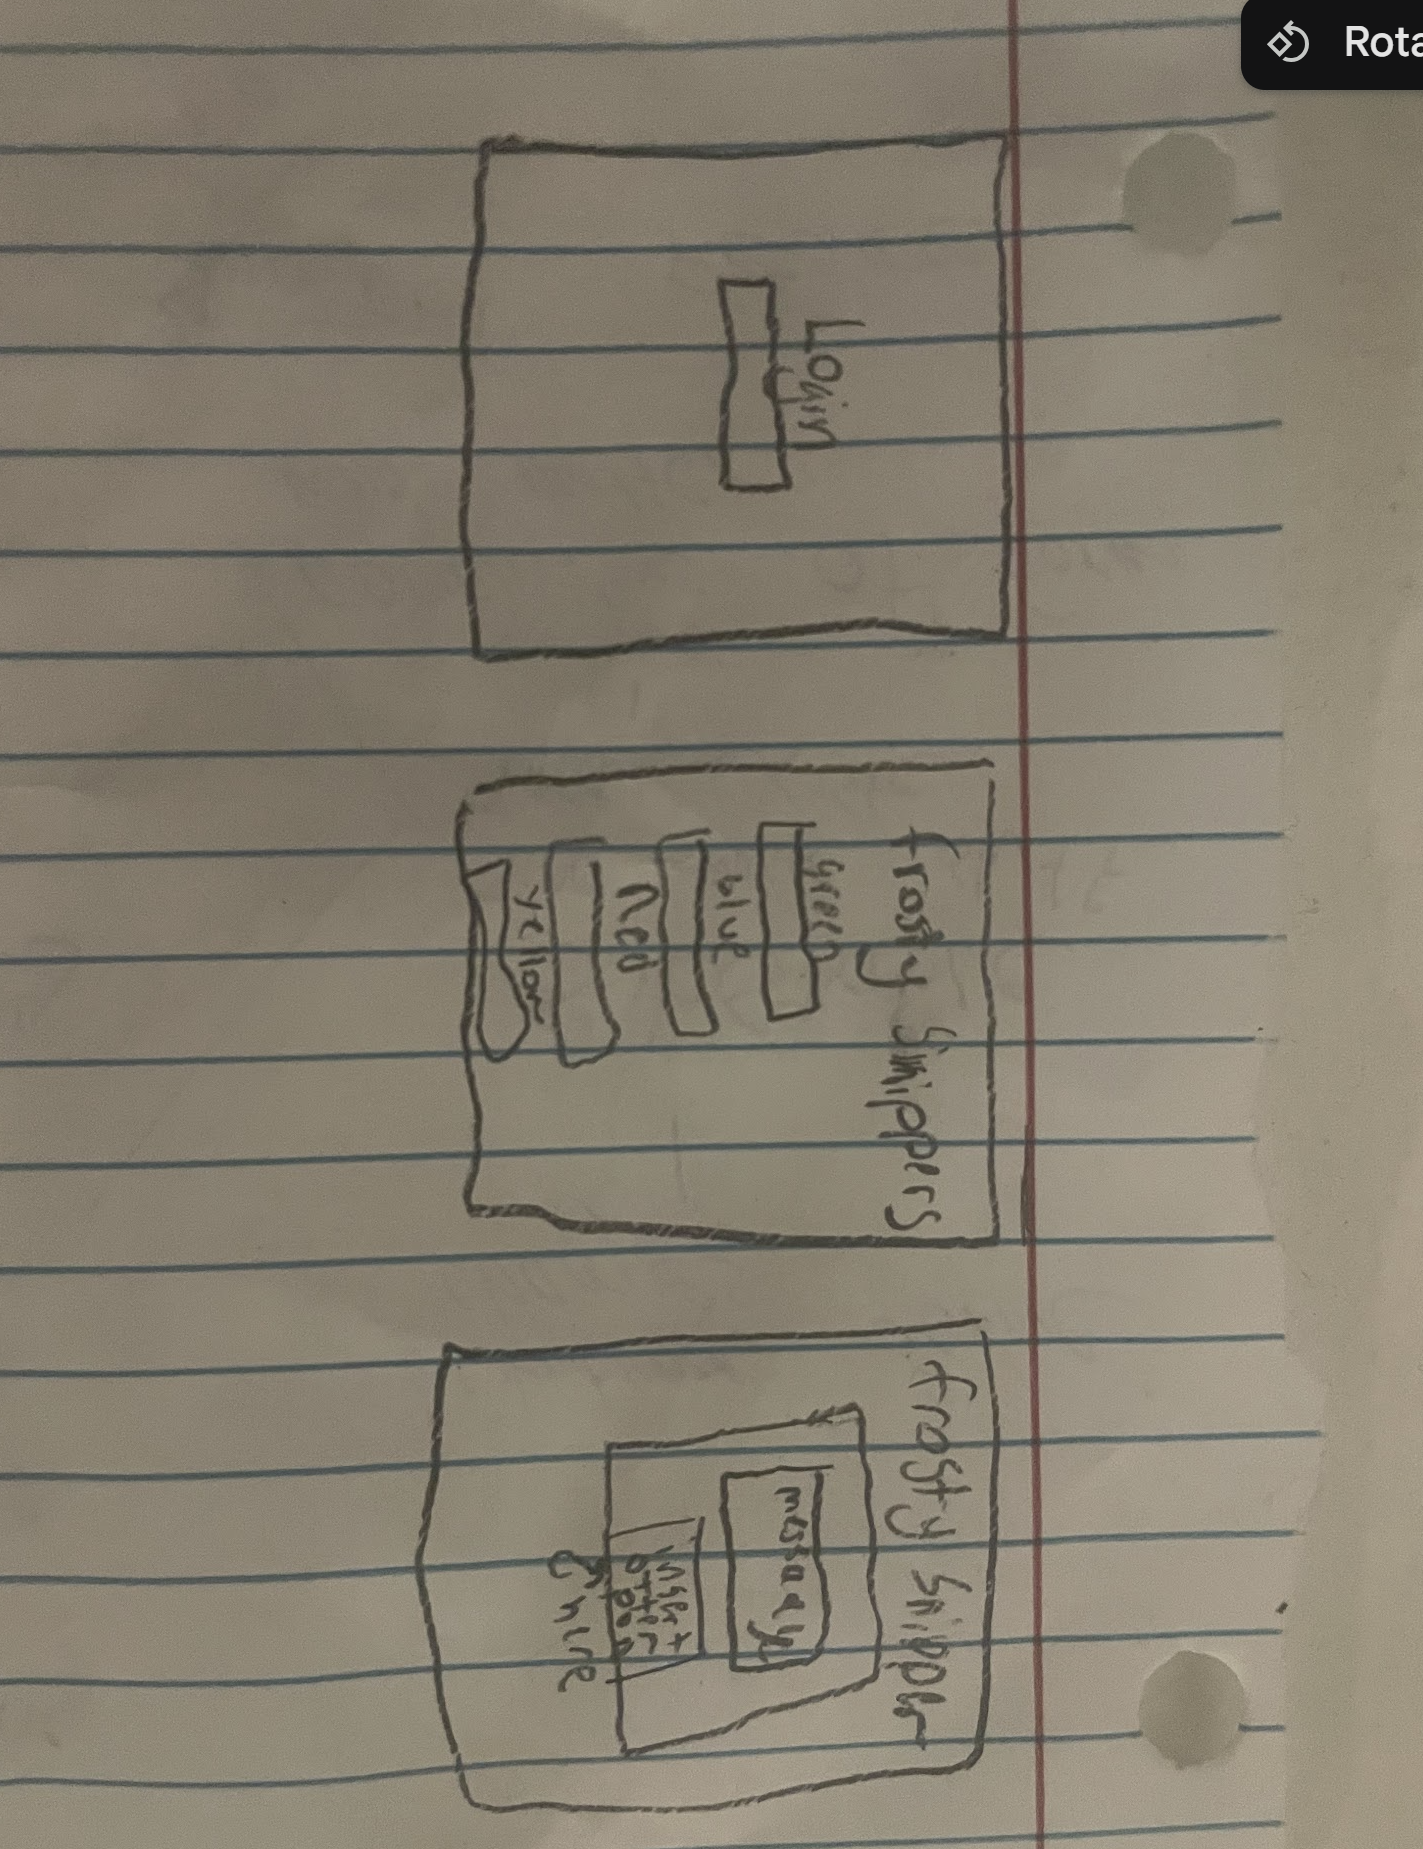 Rota
Login
frosty Snippers
Green
blue
Red
yellow
frosty Snipper
message
insert
other
here